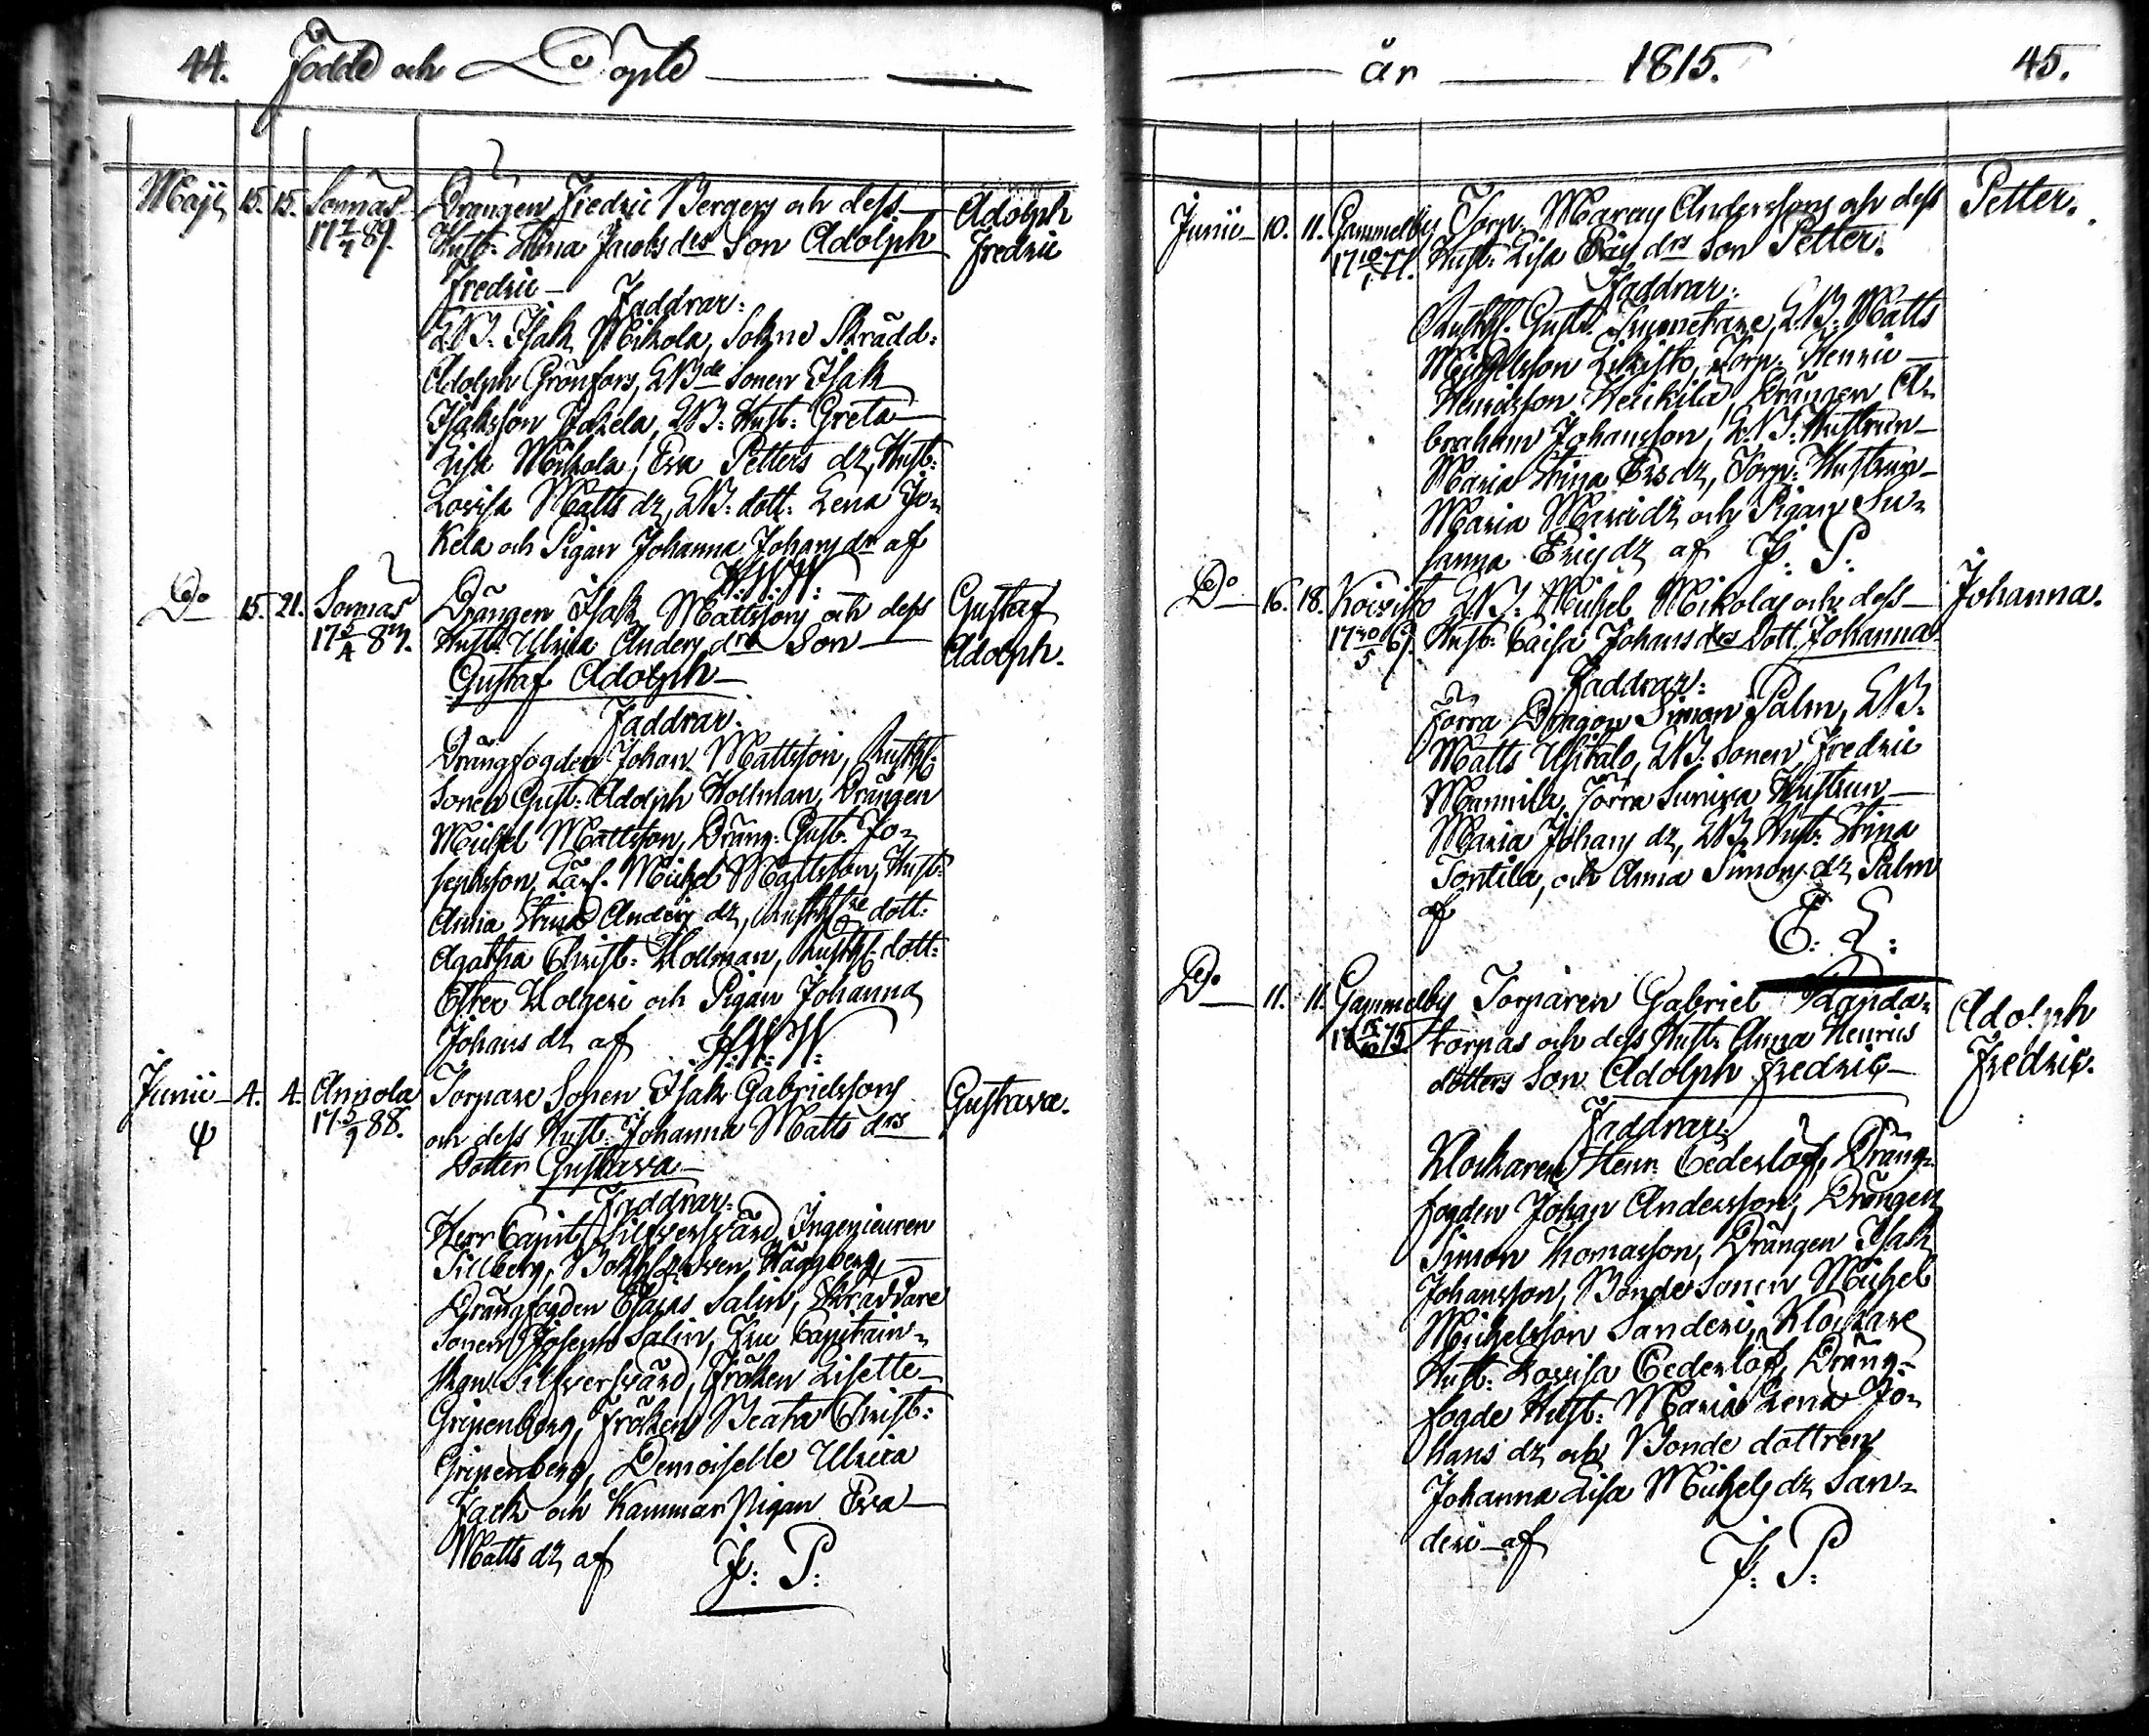 44. Födde och Döpte
Maji 15. 15. Sonnäs Drängen Fredric Bergers och dess Adolph
17 7/7 89. Hust: Stina Jacobs drs Son Adolph Fredric
Fredric
Faddrar:
L.B. Isak Mickola, Sokne Skrädd:
Adolph Grönfors, LBde Sonen Isak
Isaksson Jakela, LB: Hust: Greta
Lisa Mickola, Eva Petters dr, Hust:
Lovisa Matts dr, LB: dott: Lena Ja-
kela och Pigan Johanna Johans dr af
H.W.
Do 15. 21. Sonnäs Drängen Isak Mattssons och dess Gustaf
17 5/4 87. Hust: Ulrica Anders drs Son Adolph.
Gustaf Adolph
Faddrar.
Drängfogden Johan Mattsson, Rusth:
Sonen Gust: Adolph Hollman, Drängen
Michel Mattsson, Dräng: Gust: Jo-
sephsson, Michel Mattsson, Hust:
Anna Stina Anders dr, Rusth dott:
Agatha Christ: Hollman, Rusth: dott:
Ester Holgeri och Pigan Johanna
Johans dr af H.W.
Junii 4. 4. Anjola Torpare Sonen Isak Gabrielssons Gustava.
17 5/9 88. och dess Hust: Johanna Matts drs
Dotter Gustava
Faddrar:
Herr Capit: Silfversvärd, Ingenieuren
Tillberg, Bokh: Sven Häggberg,
Drängfogden Esaias Salin, Skräddare
Sonen Joseph Salin, Fru Capitain-
skan Silfversvärd, Fröken Lisette
Gripenberg, Fröken Beata Christ:
Gripenberg, Demoiselle Ulrica
Fack och Kammar Pigan Eva
Matts dr af J: P:
år 1815. 45.
Junii 10. 11. Gammelby Torp. Marcus Anderssons och dess Petter.
Hust: Lisa Erics drs Son Petter.
Faddrar:
Rusth. Gust: L.B. Matts
Michelsson Torp. Henric
Henricsson Heickilä, Drängen A-
braham Johansson, L.B. Hustrun
Maria Stina Ersdr, Torp: Hustrun
Maria Maridr och Pigan Su-
sanna Erics dr af J: P:
Do 16. 18. Koivisto LB: Michel Mickolas och dess Johanna.
17 30/5 Hust: Caisa Johans drs Dott: Johanna
Faddrar:
Förra Dragon Simon Palm, LB.
Matts Ufitalo, LB: Sonen Fredric
Mannila, Förra Hustrun
Maria Johans dr, LB: Hust: Stina
Tontila, och Anna Simons dr Palm
af E: L:
Do 11. 11. Gammelby Torparen Gabriel Adolph
torpas och dess Hust: Anna Henrics Fredric.
dotters Son Adolph Fredric
Faddrar:
Klockaren Henr: Cederlöf, Dräng-
fogden Johan Andersson, Drängen
Simon Thomasson, Drängen Isak
Johansson, Bonde Sonen Michel
Michelsson Sanderi, Klockare
Hust: Lovisa Cederlöf, Dräng-
fogde Hust: Maria Lena Jo-
hans dr och Bonde dottren
Johanna Lisa Michels dr San-
deri af J: P: